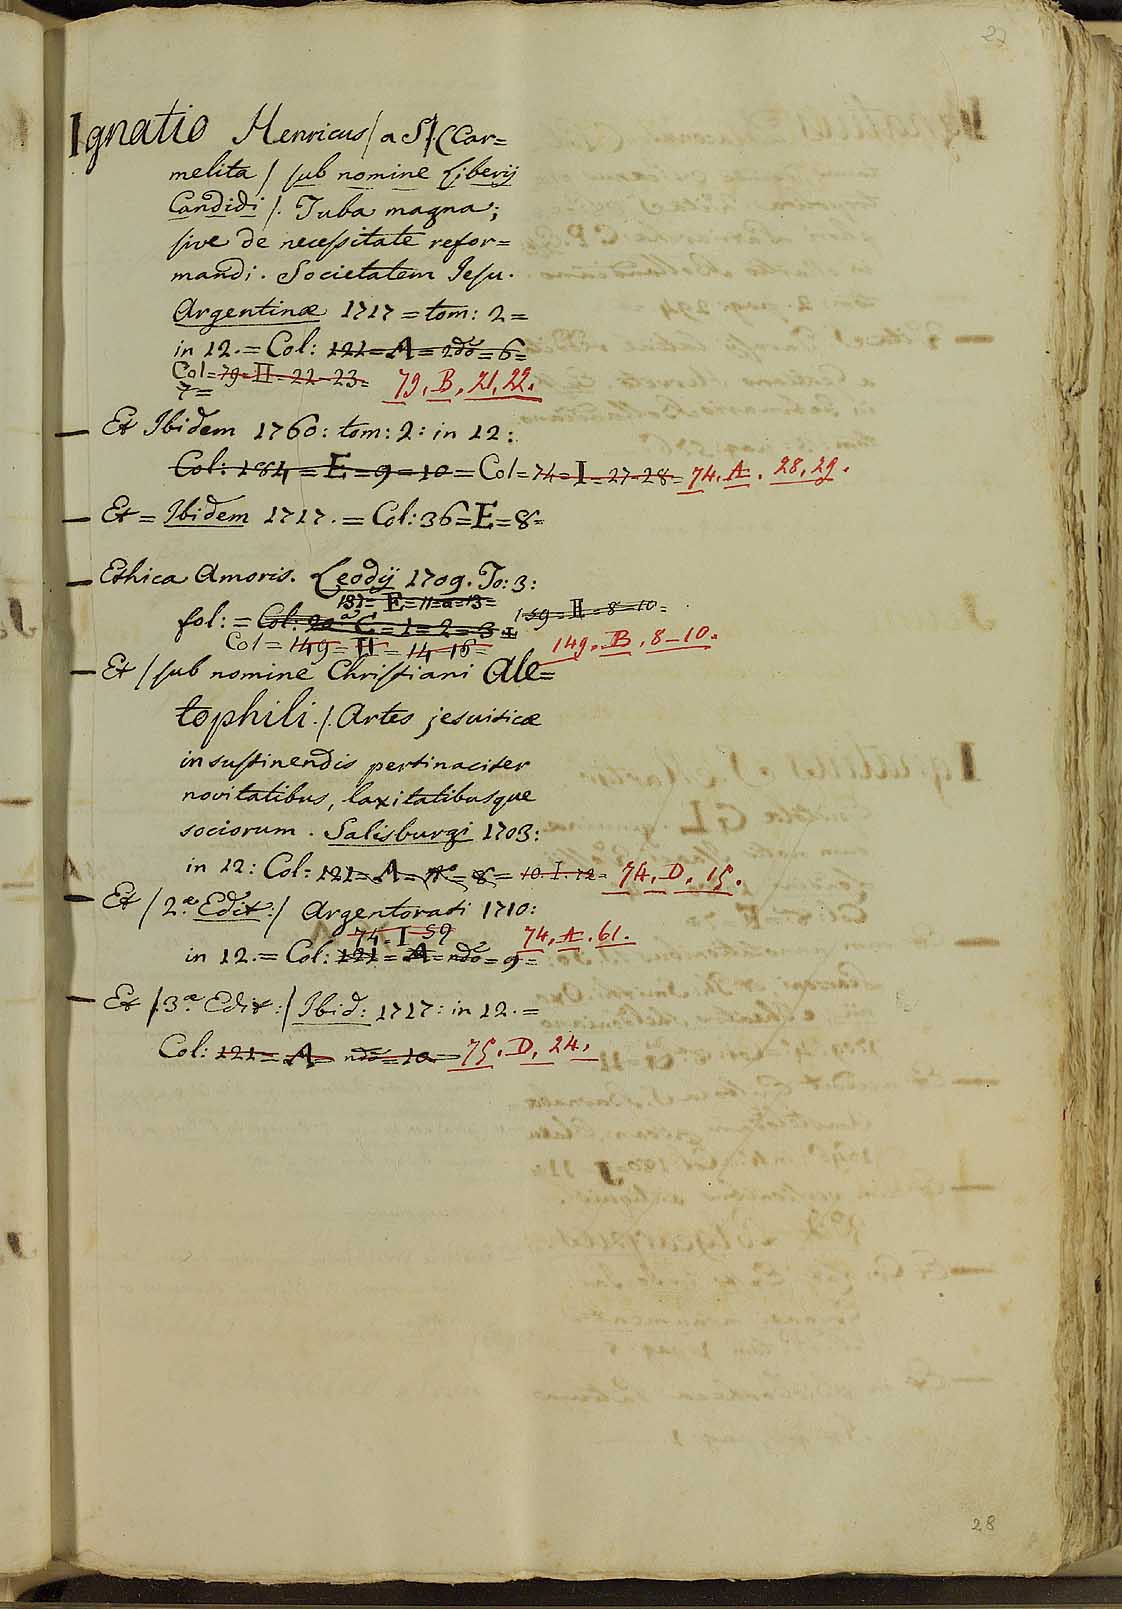 27
Ignatio Henricus / a S / (Car=
melita / sub nomine Liberij
Candidi /. Tuba magna;
sive de necessitate refor=
mandi. Societatem Jesu.
Argentinæ 1717 = tom: 2 =
in 12. = Col: 121 = A = 2do = 6=
Col = 79 = H = 22 - 23 = 79. B. 21, 22.
7 =
Et Ibidem 1760: tom: 2: in 12:
Col: 184 = E = 9 = 10 = Col = 74 = I = 27 - 28 = 74. A. 28, 29.
Et = Ibidem 1717. = Col: 36 = E = 8 =
Ethica Amoris. Leodij 1709. To: 3:
137 = E = 11 = a = 13 =
fol: = Col: C = 1 = 2 = 3 = 159 = H = 8 = 10 =
Col = 149 = H = 14 - 16 = 149. B. 8 - 10.
Et / sub nomine Christiani Ale=
tophili. /. Artes jesuiticæ
in sustinendis pertinaciter
novitatibus, laxitatibusque
sociorum. Salisburgi 1703:
in 12: Col: 121 = A = = 8 = 10. I. 12 = 74. D. 15.
Et / 2.æ Edit: / Argentorati 1710:
74 = I = 59 74. A. 61.
in 12. = Col: 121 = A = ndo = 9 =
Et / 3.æ Edit: / Ibid: 1717: in 12. =
Col: 121 = A = ndo = 10 = 75. D. 24.
28